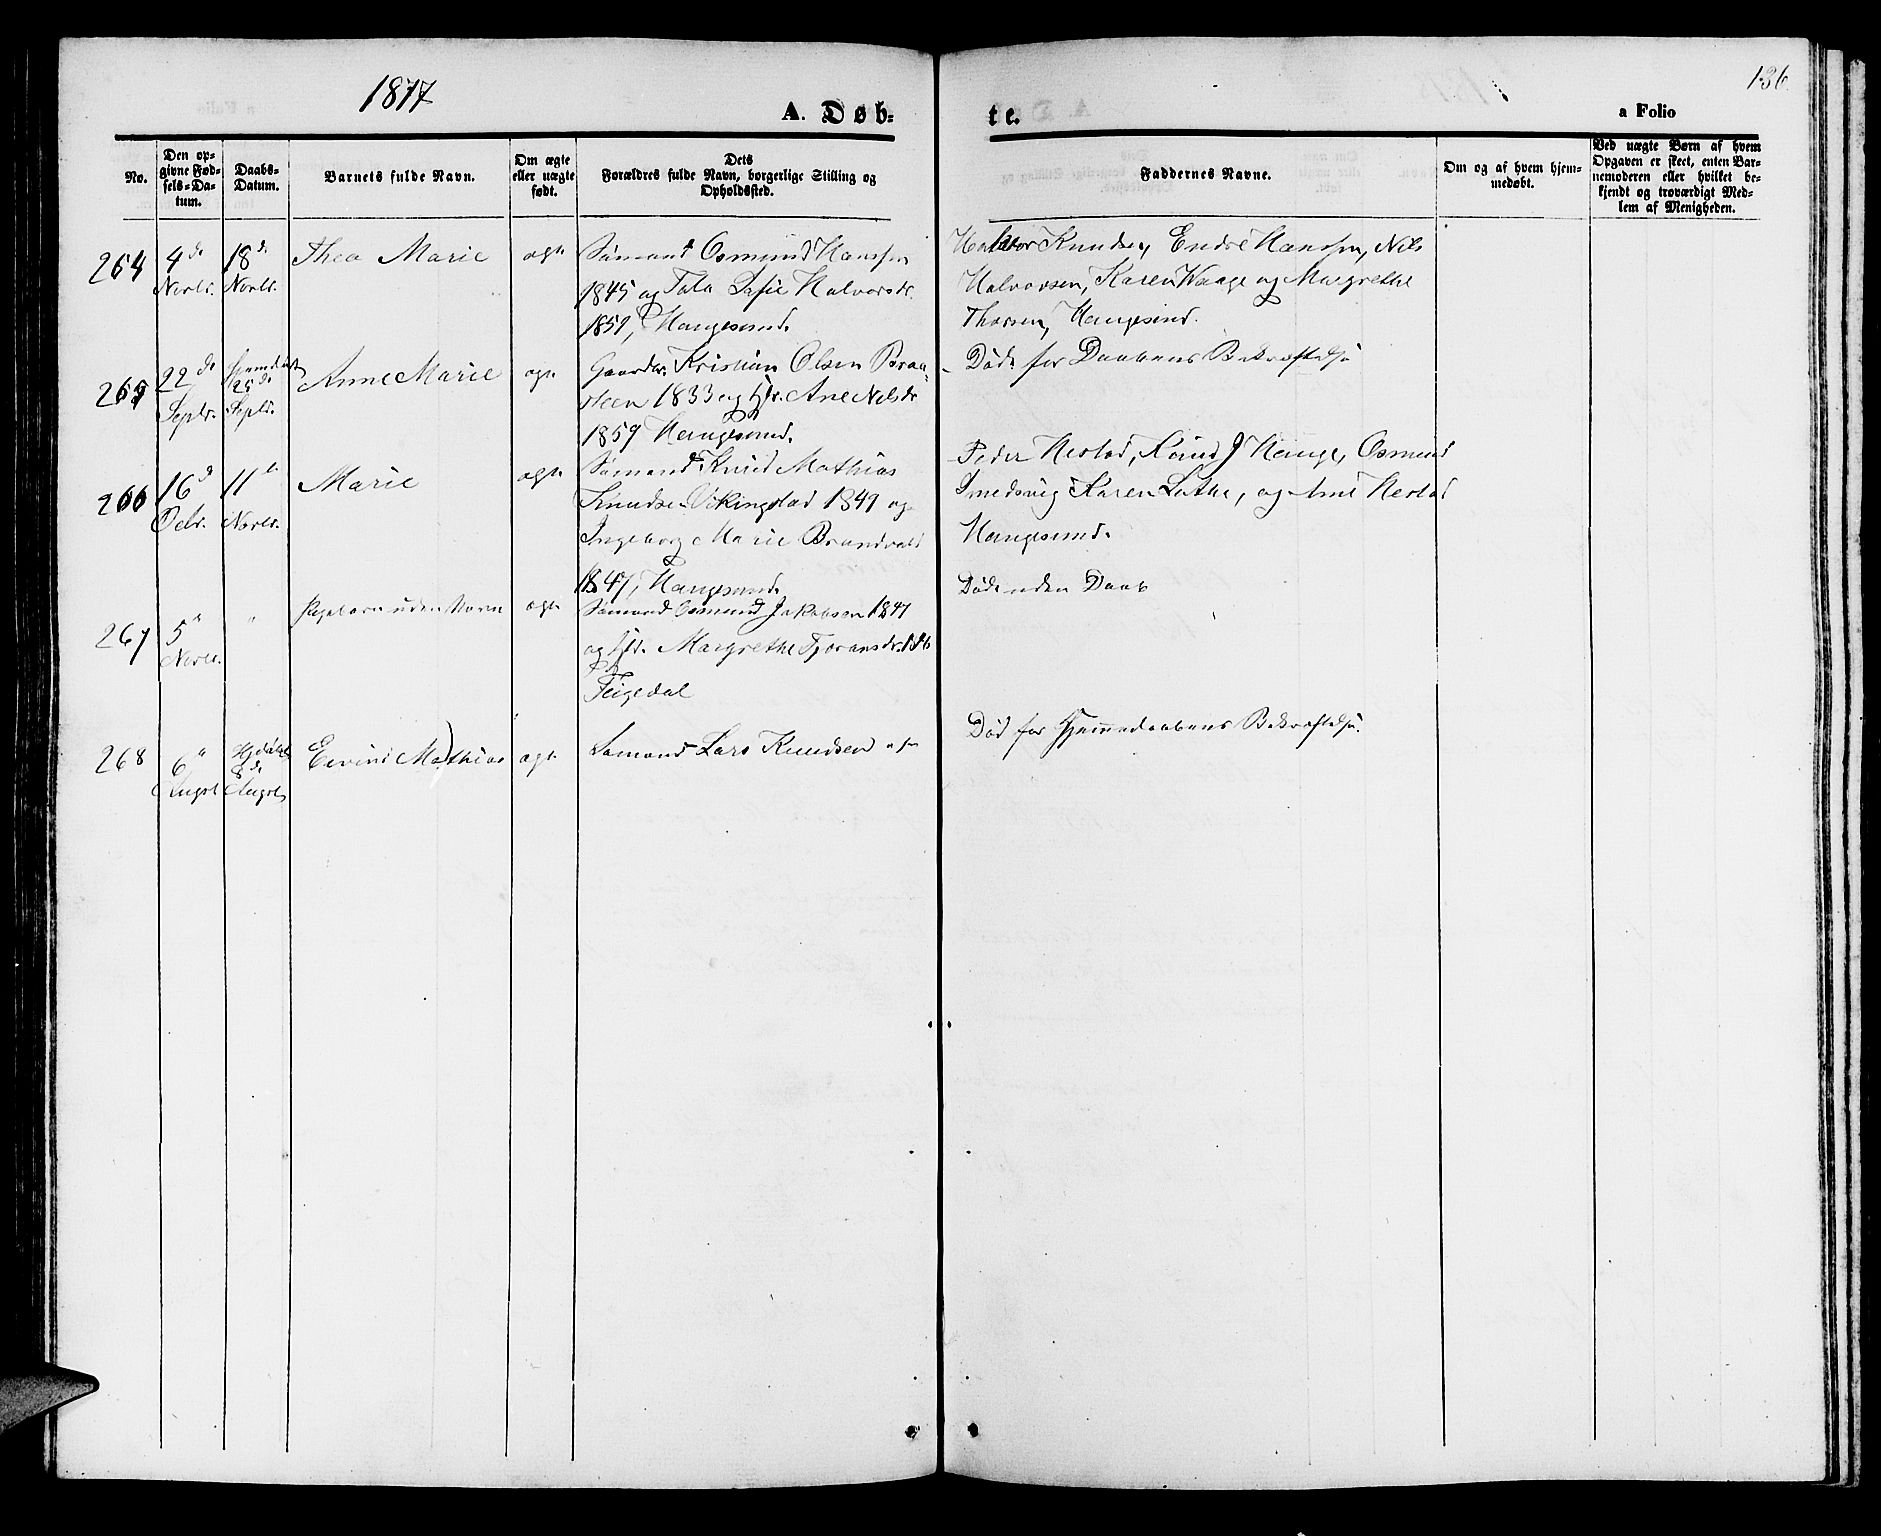 1877
136
A. Døb-
te.
a Folio
No.
Den op-
givne Fød-
sels-Da-
tum.
Daabs-
Datum.
Barnets fulde Navn.
Om ægte
eller uægte
født.
Dets
Forældres fulde Navn, borgerlige Stilling og
Opholdssted.
Faddernes Navne.
Om og af hvem hjem-
medøbt.
Ved uægte Børn af hvem
Opgaven er skeet, enten Bar-
nemoderen eller hvilket be-
kjendt og troværdigt Med-
lem af Menigheden.
264
4de
Novbr.
18de
Novbr.
Thea Marie
ægte
Sømand Osmund Hanssen
1845 og Tala Sofie Halvorsdr.
1851, Haugesund.
Halvor Knudsen, Endre Hanssen, Nils
Halvorsen, Karen Waage og Margrethe
Thorsen, Haugesund.
265
22de
Septr.
25de
Septr.
Anne Marie
ægte
Gaardbr. Kristian Olsen Braa-
steen 1833 og Hr. Ane Nilsdr
1859 Haugesund.
Døde før Daabens Bekræftelse
266
16de
Octr.
11te
Novbr.
Marie
ægte
Sømand Knud Mathias
Knudsen Vikingstad 1849 og
Ingeborg Marie Brandvold
1847, Haugesund.
Peder Nestad, Knud J Hauge, Osmund
Smedsvig Karen Lothe, og Ane Nestad
Haugesund.
267
5"
Novbr.
"
Pigebarn uden Navn
ægte
Sømand Osmund Jakobsen 1847
og Hr. Margrethe Tjøransdr.
Feigedal
Døde uden Daab
268
6"
Augst
8de
Augst
Eivind Mathias
ægte
Sømand Lars Knudsen
Død før Hjemmedaabens Bekræftelse.